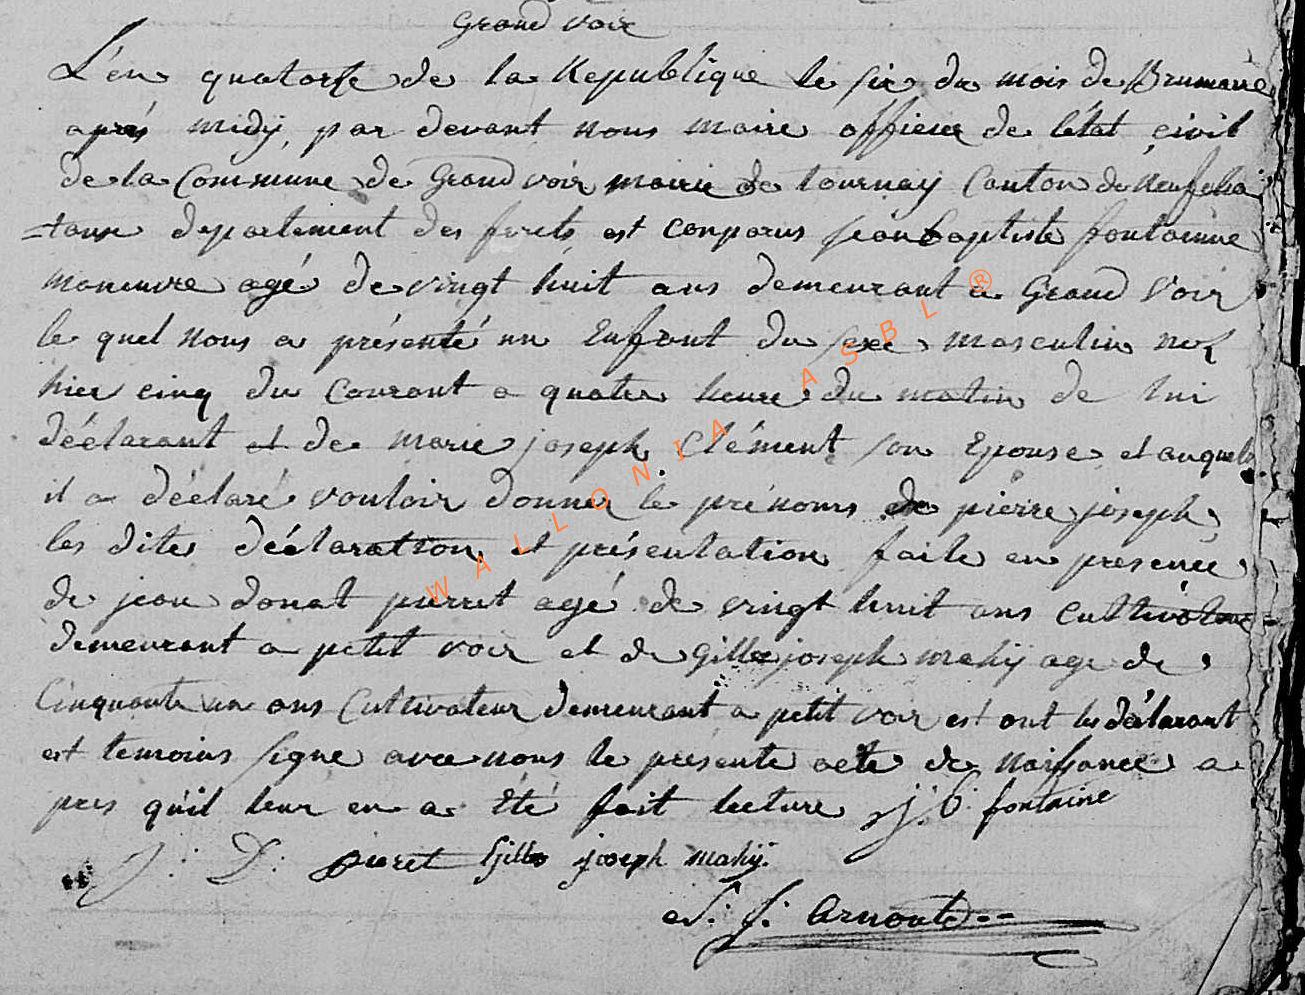 Grand voir
L'én quatorse de la Republique le six du mois de Brumaire
aprés midÿ, par devant nous maire officier de l'état civil
de la Commune de Grand voir mairie de tournaÿ Canton de Neufcha
=taux departement des forets est comparus jéan baptiste fontainne
maneuvre agé de vingt huit ans demeurant a Grand Voir
le quel nous a présenté un Enfant du sexe masculin nez
hier cinq du Courant a quater heure du matin de lui
déélarant et de marie joseph Clément son Epouse et auquel
il a déélaré vouloir donner le prénoms de pierre joseph
les dites déélaration et présentation faite en presence
de jean donat pierret agé de vingt huit ans cultivateur
demeurant a petit voir et de Gilles joseph mahÿ age de
Cinquante un ans Cultivateur demeurant a petit voir est ont les déélarant
est temoins signe avec nous le presente acte de naissance a
pres qu'il leur en a été fait lecture j. b. fontaine
J: D: pieret Gilles joseph mahÿ
J: Arnould
WALLONIA ASBL ®